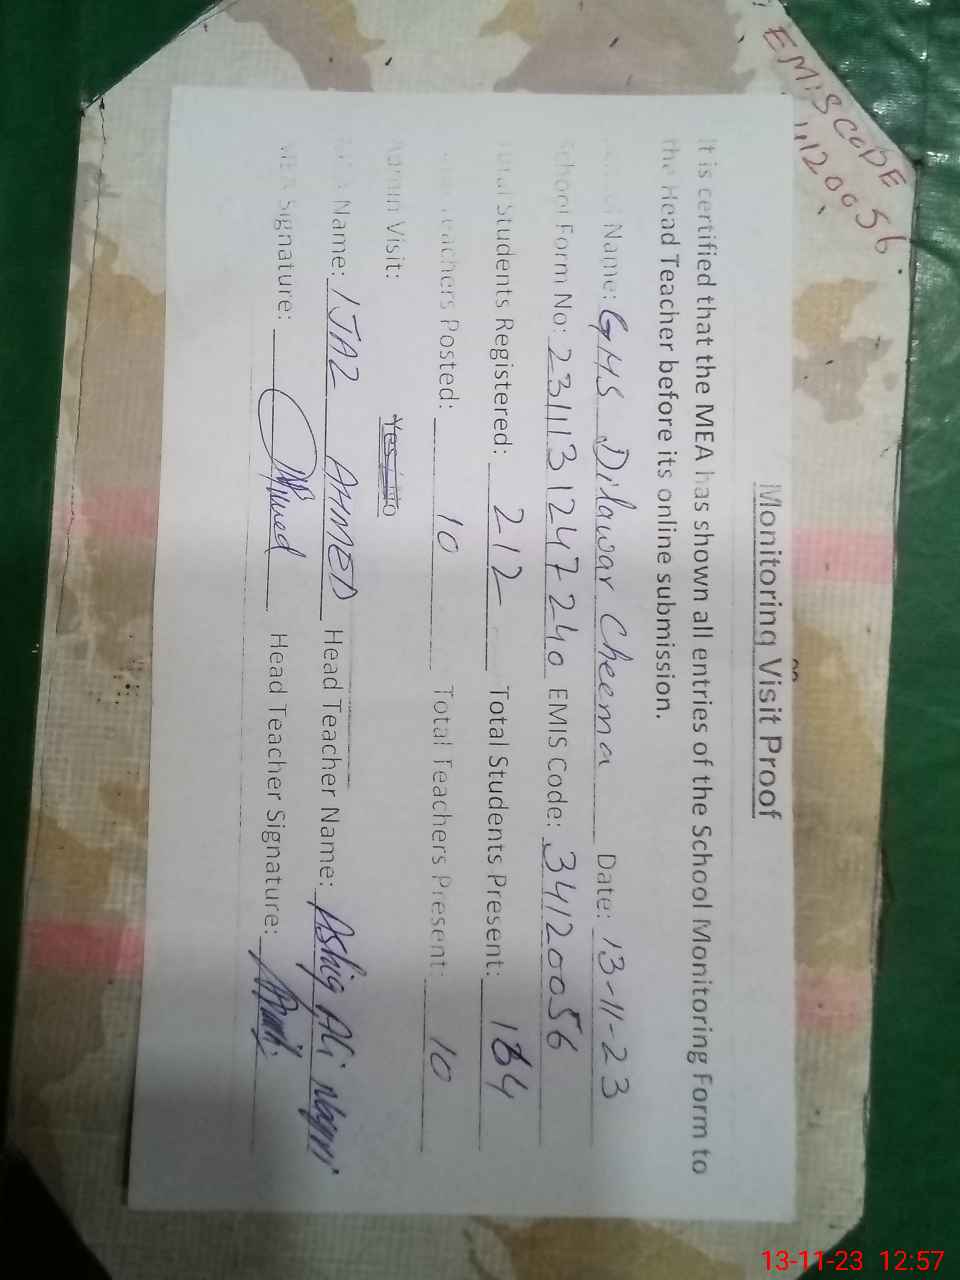 EMIS CODE
Monitoring Visit Proof
It is certified that the MEA has shown all entries of the School Monitoring Form to
the Head Teacher before its online submission.
Name: GHS Dilawar Cheema Date: 13-11-23
School Form No: 2311131247240 EMIS Code: 34120056
Total Students Registered: 212 Total Students Present: 164
Teachers Posted: 10 Total Teachers Present: 10
Admin Visit: Yes / No
Name: IJAZ AHMED Head Teacher Name: Ashiq Ali
MEA Signature: Head Teacher Signature:
13-11-23 12:57